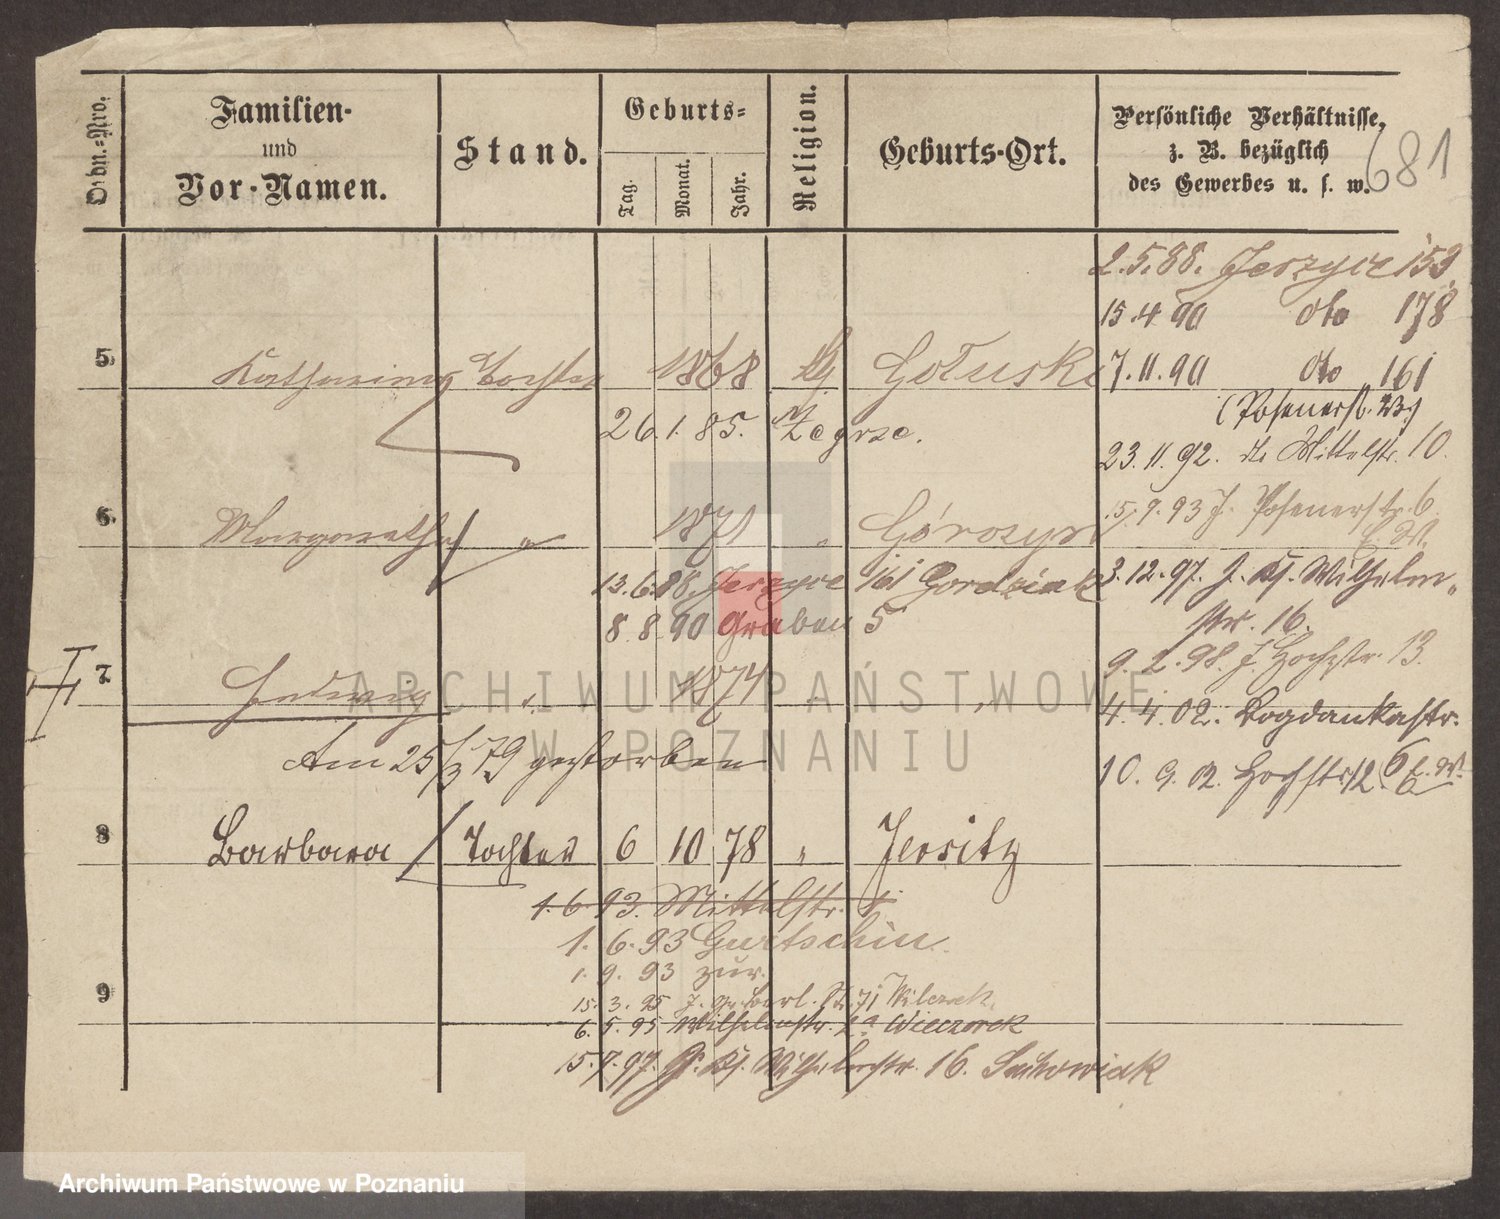 Ordn.-Nro.
Familien-
und
Vor-Namen.
Stand.
Geburts-
Tag.
Monat.
Jahr.
Religion.
Geburts-Ort.
Persönliche Verhältnisse,
z. B. bezüglich
des Gewerbes u. s. w.
681
2.5.88. Jerzyce 153
15.4.90 dto 178
5. Katharina Tochter 1868
7.11.90 dto 161
(Posenerstr. 23.)
26.1.85. Zegrze.
23.11.92. Mittelstr. 10.
6. Margaretha " 1871 "
15.9.93 J. Posenerstr. 6.
13.6.88. Jerzyce 161 Gordziak
3.12.97. J. Kf. Wilhelm-
str. 16.
8.8.90 Graben 5
9.2.98. J. Hochstr. 13.
7. Hedwig " 1874 "
4.4.02. Bogdankastr.
6
Am 25/3 79 gestorben
10.9.02. Hochstr 12.
8 Barbara Tochter 6 10 78 " Jersitz
1.6.93. Mittelstr.
1.6.93 Gurtschin
1.9.93 zur.
9
15.3.95
6.5.95 Wilhelmstr. 2a Wieczorek
15.7.97. Kf. Wilhelmstr. 16.
ARCHIWUM PAŃSTWOWE
W POZNANIU
Archiwum Państwowe w Poznaniu